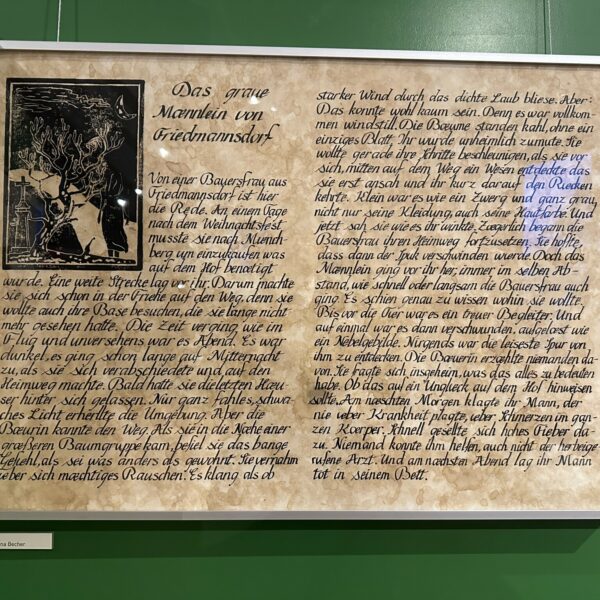 Das graue
Mænnlein von
Friedmannsdorf
Von einer Bauersfrau aus
Friedmannsdorf ist hier
die Rede. An einem Tage
nach dem Weihnachtsfest
musste sie nach Muench-
berg um einzukaufen was
auf dem Hof benoetigt
wurde. Eine weite Strecke lag vor ihr. Darum machte
sie sich schon in der Friehe auf den Weg, denn sie
wollte auch ihre Base besuchen, die sie lange nicht
mehr gesehen hatte. Die Zeit verging wie im
Flug und unversehens war es Abend. Es war
dunkel, es ging schon lange auf Mitternacht
zu, als sie sich verabschiedete und auf den
Heimweg machte. Bald hatte sie die letzten Hæu-
ser hinter sich gelassen. Nur ganz fahles, schwa-
ches Licht erhellte die Umgebung. Aber die
Bæurin kannte den Weg. Als sie in die Næhe einer
grœßeren Baumgruppe kam, befiel sie das bange
Gefuehl, als sei was anders als gewohnt. Sie vernahm
ueber sich mæchtiges Rauschen. Es klang als ob
starker Wind durch das dichte Laub bliese. Aber:
Das konnte wohl kaum sein. Denn es war vollkom-
men windstill. Die Bæume standen kahl, ohne ein
einziges Blatt. Ihr wurde unheimlich zumute. Sie
wollte gerade ihre Schritte beschleunigen, als sie vor
sich, mitten auf dem Weg ein Wesen entdeckte das
sie erst ansah und ihr kurz darauf den Ruecken
kehrte. Klein war es wie ein Zwerg und ganz grau,
nicht nur seine Kleidung, auch seine Hautfarbe. Und
jetzt sah sie wie es ihr winkte. Zœgerlich begann die
Bauersfrau ihren Heimweg fortzusetzen. Sie hoffte,
dass dann der Spuk verschwinden wuerde. Doch das
Mænnlein ging vor ihr her, immer im selben Ab-
stand, wie schnell oder langsam die Bauersfrau auch
ging. Es schien genau zu wissen wohin sie wollte.
Bis vor die Tier war es ein treuer Begleiter. Und
auf einmal war es dann verschwunden, aufgelœst wie
ein Nebelgebilde. Nirgends war die leiseste Spur von
ihm zu entdecken. Die Bæuerin erzæhlte niemanden da-
von. Sie fragte sich insgeheim, was das alles zu bedeuten
habe. Ob das auf ein Unglueck auf dem Hof hinweisen
sollte. Am næchsten Morgen klagte ihr Mann, der
nie ueber Krankheit plagte, ueber Schmerzen im gan-
zen Kœrper. Schnell gesellte sich hohes Fieber da-
zu. Niemand konnte ihm helfen, auch nicht der herbeige-
rufene Arzt. Und am næchsten Abend lag ihr Mann
tot in seinem Bett.
Decher